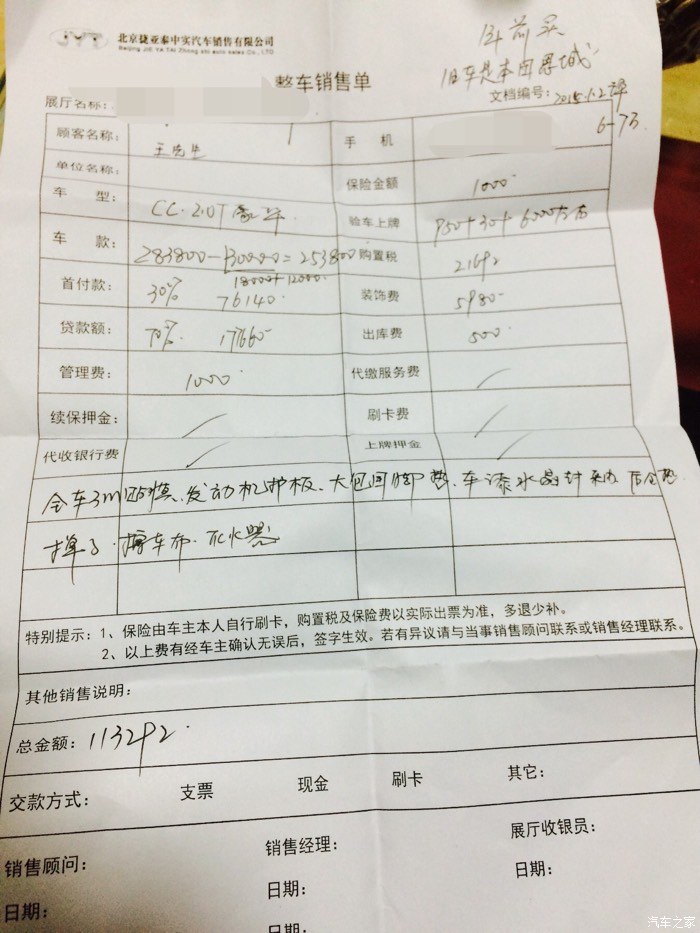 北京捷亚泰中实汽车销售有限公司
Beijing JIE YA TAI Zhong shi auto sales Co., LTD
整车销售单
旧车是本田思域
展厅名称:
文档编号: 2015.1.2
6-7万
顾客名称: 王先生 手 机
单位名称: 保险金额 1000
车 型: CC 2.0T 豪华 验车上牌 950+30+6000左右
车 款: 283800-30000=253800 购置税 21692
18000+12000
首付款: 30% 76140 装饰费 5980
贷款额: 70% 177660 出库费 500
管理费: 1000 代缴服务费
续保押金: 刷卡费
代收银行费 上牌押金
全车3m 发动机护板、大包围脚垫、车漆水晶 后备垫
掸子、擦车布、灭火器
特别提示:1、保险由车主本人自行刷卡,购置税及保险费以实际出票为准,多退少补。
2、以上费有经车主确认无误后,签字生效。若有异议请与当事销售顾问联系或销售经理联系。
其他销售说明:
总金额: 113292
交款方式: 支票 现金 刷卡 其它:
销售顾问: 销售经理: 展厅收银员:
日期: 日期: 日期:
日期:
汽车之家